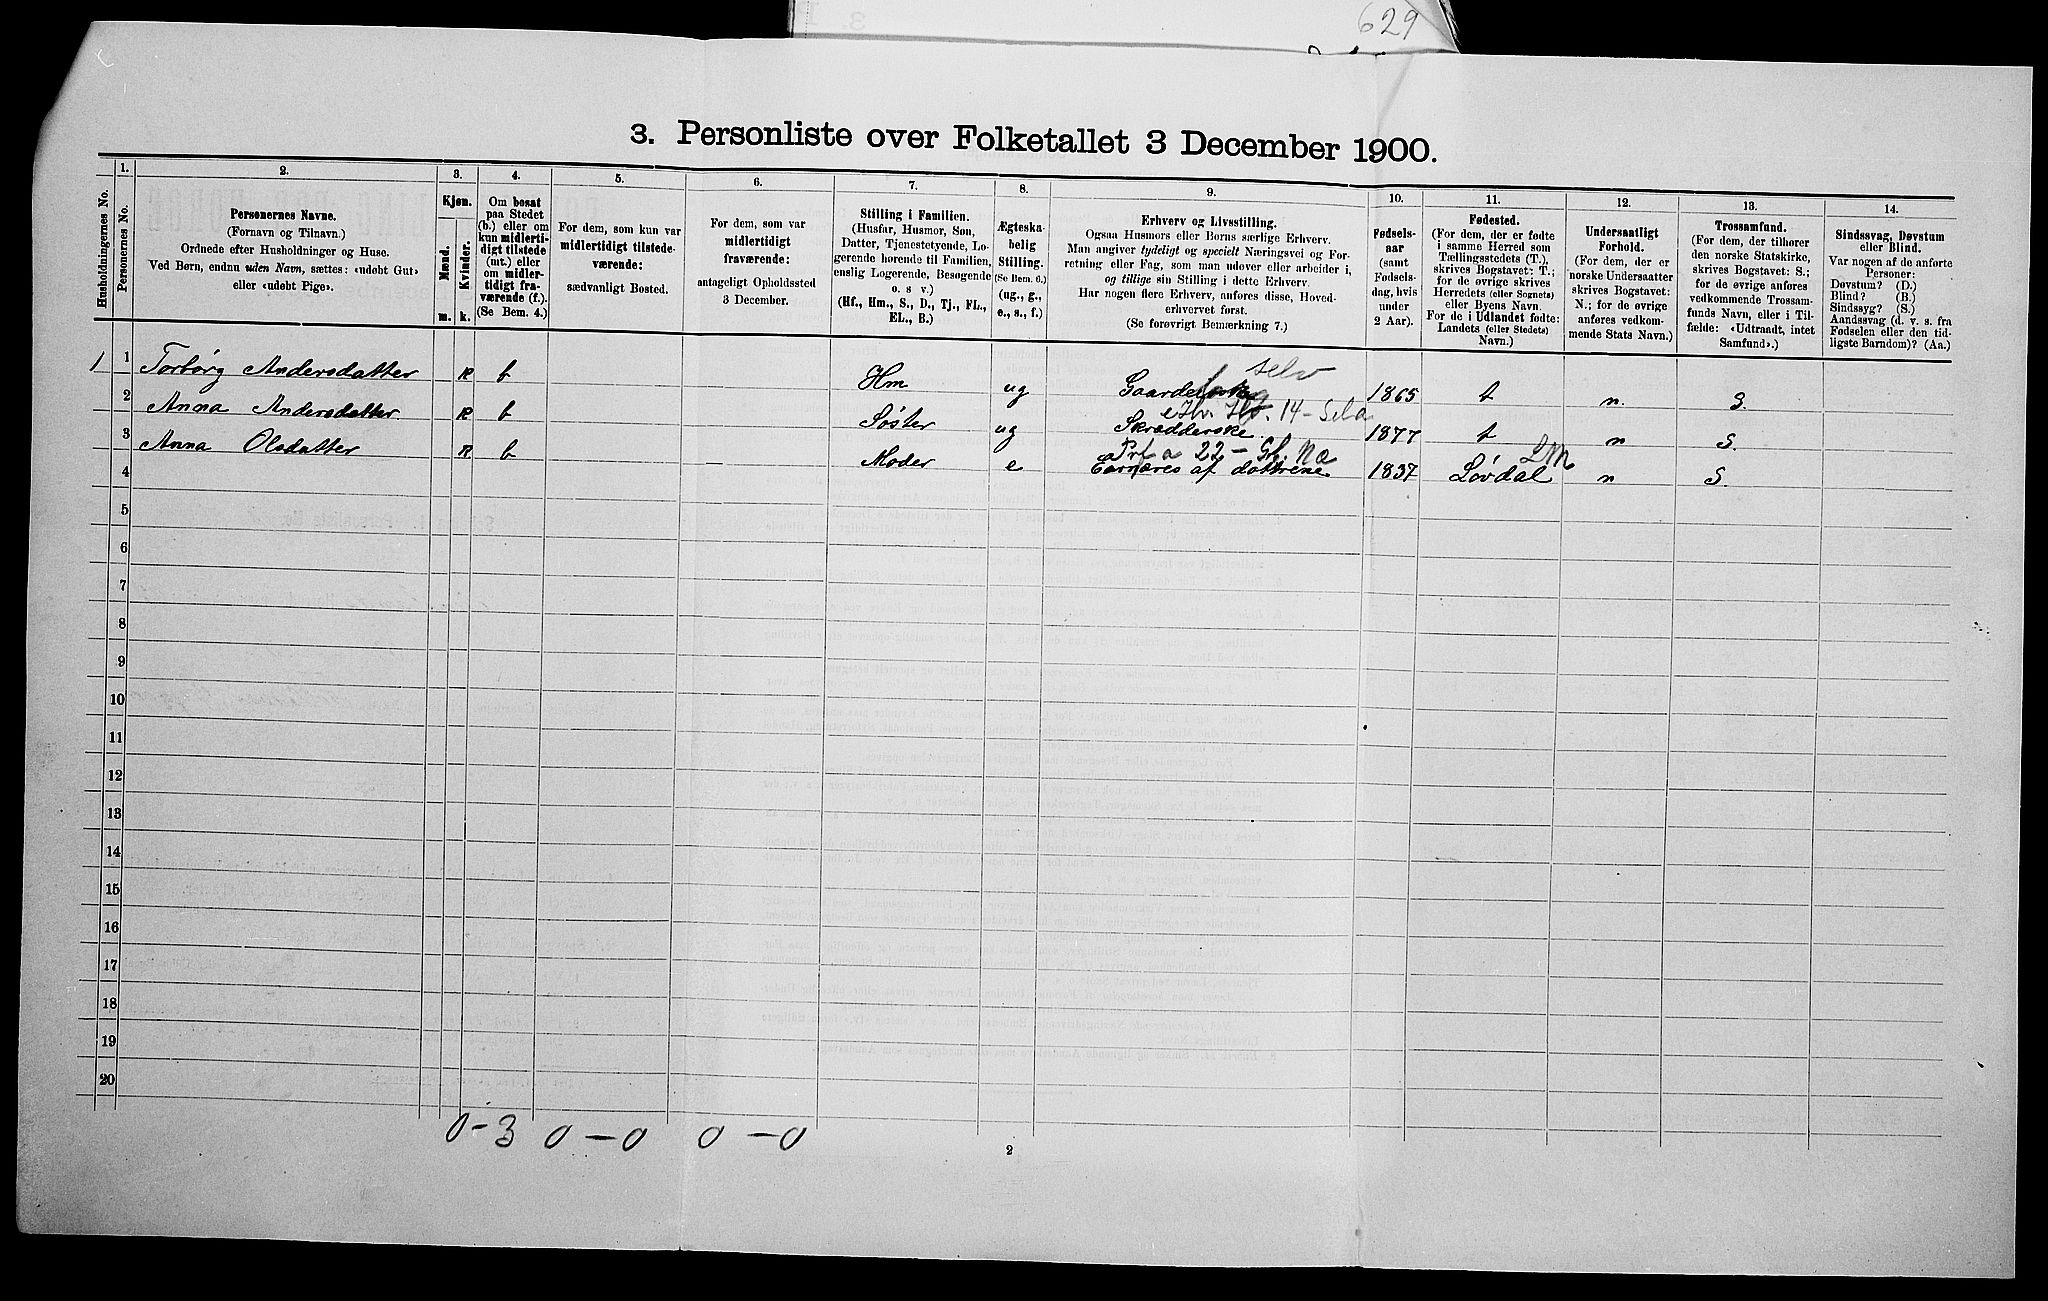 629
3. Personliste over Folketallet 3 December 1900.
Husholdningernes No.
1.
Personernes No.
2.
Personernes Navne.
(Fornavn og Tilnavn.)
Ordnede efter Husholdninger og Huse.
Ved Børn, endnu uden Navn, sættes: «udøbt Gut»
eller «udøbt Pige».
3.
Kjøn.
Mænd.
Kvinder.
m.
k.
4.
Om bosat
paa Stedet
(b.) eller om
kun midlerti-
digt tilstede
(mt.) eller
om midler-
tidigt fra-
værende (f.).
(Se Bem. 4.)
5.
For dem, som kun var
midlertidigt tilstede-
værende:
sædvanligt Bosted.
6.
For dem, som var
midlertidigt
fraværende:
antageligt Opholdssted
3 December.
7.
Stilling i Familien.
(Husfar, Husmor, Søn,
Datter, Tjenestetyende, Lo-
gerende hørende til Familien,
enslig Logerende, Besøgende
o. s v.)
(Hf., Hm., S., D., Tj., FL.,
EL., B.)
8.
Ægteska-
belig
Stilling.
(Se Bem. 6.)
(ug., g.,
e., s., f.)
9.
Erhverv og Livsstilling.
Ogsaa Husmors eller Børns særlige Erhverv.
Man angiver tydeligt og specielt Næringsvei og For-
retning eller Fag, som man udøver eller arbeider i,
og tillige sin Stilling i dette Erhverv.
Har nogen flere Erhverv, anføres disse, Hoved-
erhvervet først.
(Se forøvrigt Bemærkning 7.)
10.
Fødsels-
aar
(samt
Fødsels-
dag, hvis
under
2 Aar).
11.
Fødested.
(For dem, der er fødte
i samme Herred som
Tællingsstedets (T.),
skrives Bogstavet: T.;
for de øvrige skrives
Herredets (eller Sognets)
eller Byens Navn
For de i Udlandet fødte:
Landets (eller Stedets)
Navn.)
12.
Undersaatligt
Forhold.
(For dem, der er
norske Undersaatter
skrives Bogstavet:
N.; for de øvrige
anføres vedkom-
mende Stats Navn.)
13.
Trossamfund.
(For dem, der tilhører
den norske Statskirke,
skrives Bogstavet: S.;
for de øvrige anføres
vedkommende Trossam-
funds Navn, eller i Til-
fælde: «Udtraadt, intet
Samfund».)
14.
Sindssvag, Døvstum
eller Blind.
Var nogen af de anførte
Personer:
Døvstum? (D.)
Blind? (B.)
Sindssyg? (S.)
Aandssvag (d. v. s. fra
Fødselen eller den tid-
ligste Barndom)? (Aa.)
selv
1 1 Torbørg Andersdatter k b Hm ug 1865 t n. S.
14 - Sela
2 Anna Andersdatter. k b Søster ug Skrædderske. 1877 t n S.
22 - LM
3 Anna Olsdatter k b Moder e Ernæres af dottrene 1837 Løvdal n S.
4
5
6
7
8
9
10
11
12
13
14
15
16
17
18
19
20
0-3 0-0 0-0
2